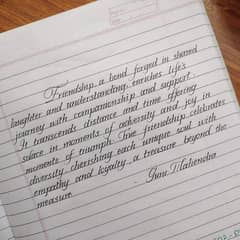 Friendship, a bond forged in shared
laughter and understanding, enriches life's
journey with companionship and support.
It transcends distance and time, offering
solace in moments of adversity and joy in
moments of triumph. True friendship celebrates
diversity, cherishing each unique soul with
empathy and loyalty, a treasure beyond the
measure.